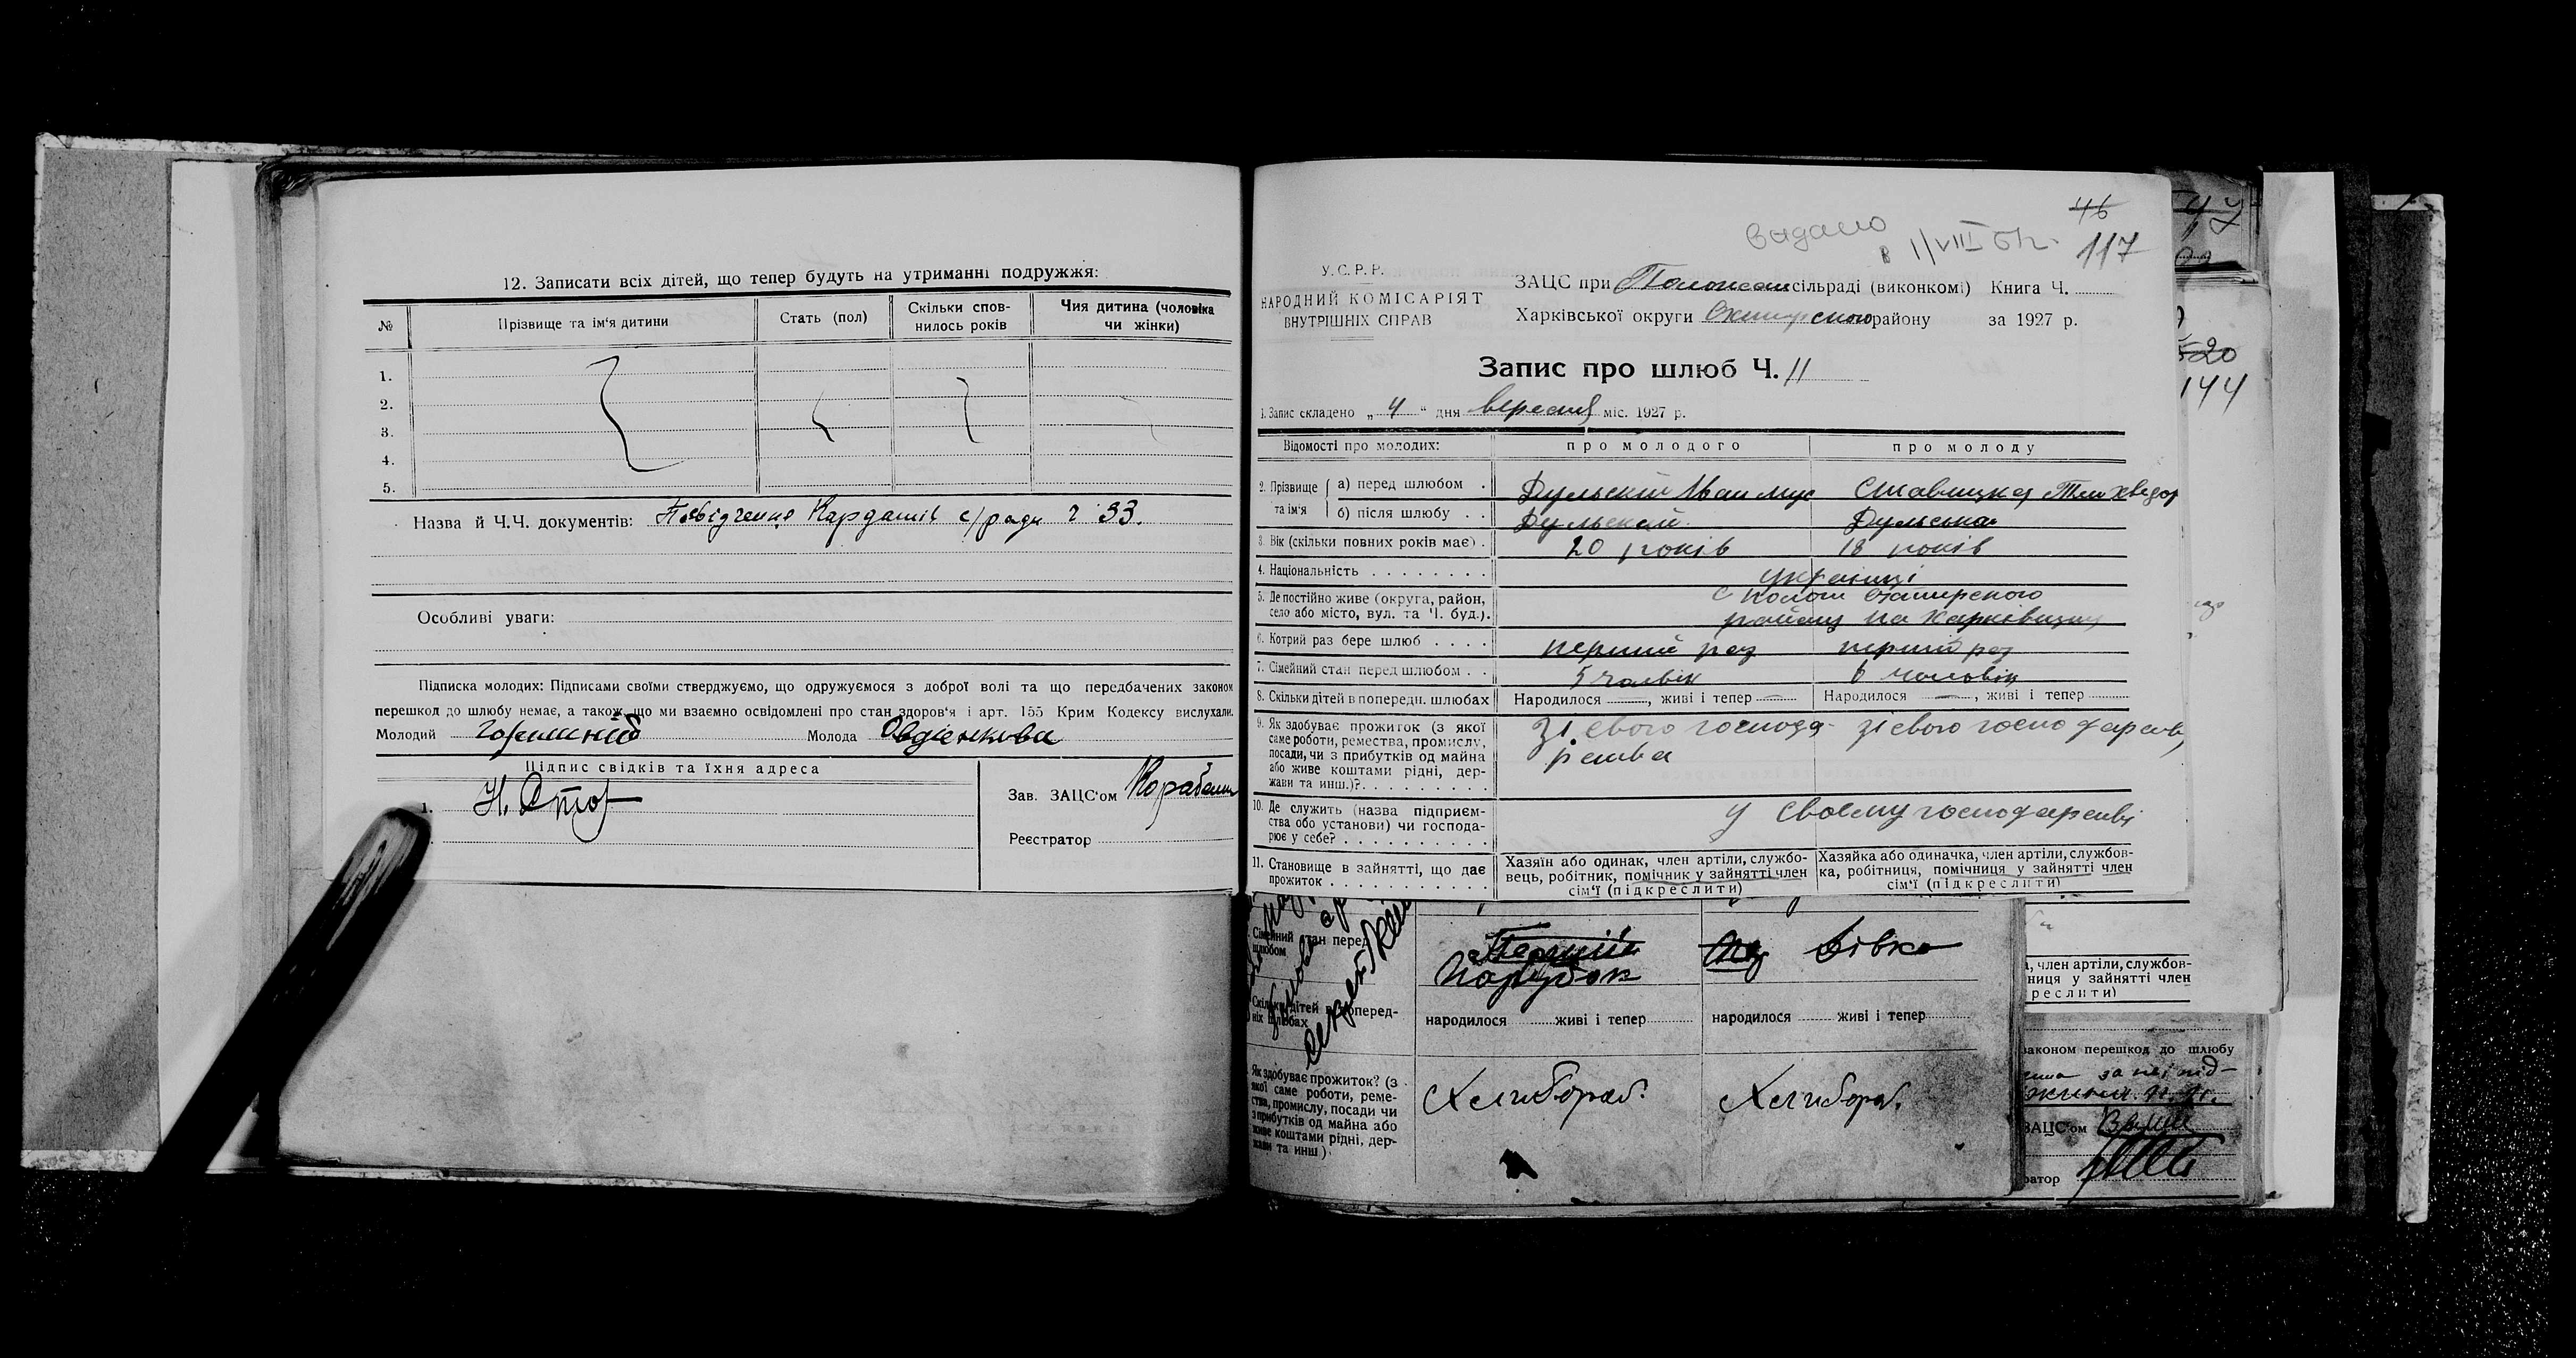 12. Записати всіх дітей, що тепер будуть на утриманні подружжя:
№ Прізвище та ім'я дитини Стать (пол) Скільки спов- Чия дитина (чоловіка
нилось років чи жінки)
1.
2.
3.
4.
5.
Назва й Ч.Ч. документів: Посвідчення Кардашів с/ради ч 33.
Особливі уваги:
Підписка молодих: Підписами своїми стверджуємо, що одружуємося з доброї волі та що передбачених законом
перешкод до шлюбу немає, а також, що ми взаємно освідомлені про стан здоров'я і арт. 155 Крим Кодексу вислухали.
Молодий Молода Овдієнкова
Підпис свідків та їхня адреса
1.
Зав. ЗАЦС'ом
Реєстратор
видано
в 1/VIII
46
117
У.С.Р.Р.
НАРОДНИЙ КОМІСАРІЯТ
ВНУТРІШНІХ СПРАВ
ЗАЦС при сільраді (виконкомі) Книга Ч.
Харківської округи Охтирського району за 1927 р.
Запис про шлюб Ч. 11
1. Запис складено „4" дня вересня міс. 1927 р.
Відомості про молодих: про молодого про молоду
2. Прізвище та ім'я а) перед шлюбом . Дульский Иван Ставицкая
б) після шлюбу . . Дульский Дульська
3. Вік (скільки повних років має) . 20 років 18 років
4. Національність . . . . . . . . українці
5. Де постійно живе (округа, район,
село або місто, вул. та Ч. буд.). району на Харківщину
6. Котрий раз бере шлюб . . . . перший раз перший раз
7. Сімейний стан перед шлюбом . . 5 чоловік 6 чоловік
8. Скільки дітей в попередн. шлюбах Народилося , живі і тепер Народилося , живі і тепер
9. Як здобуває прожиток (з якої
саме роботи, ремества, промислу,
посади, чи з прибутків од майна
або живе коштами рідні, дер-
жави та инш.)?. . . . . . . . .
зі свого господа- зі свого господарств
рства
10. Де служить (назва підприєм-
ства або установи) чи господа-
рює у себе? . . . . . . . . . .
у своєму господарстві
11. Становище в зайнятті, що дає
прожиток . . . . . . . . . . .
Хазяїн або одинак, член артілі, службо-
вець, робітник, помічник у зайнятті член
сім'ї (підкреслити)
Хазяйка або одиначка, член артілі, службов-
ка, робітниця, помічниця у зайнятті член
сім'ї (підкреслити)
Сімейний стан перед
шлюбом
Парубок Дівка
Скільки дітей в поперед-
ніх шлюбах
народилося живі і тепер народилося живі і тепер
Як здобуває прожиток? (з
якої саме роботи, реме-
ства, промислу, посади чи
з прибутків од майна або
живе коштами рідні, дер-
жави та инш).
Хлибороб. Хлибороб.
47
20
144
, член артілі, службов-
ниця у зайнятті член
реслити)
законом перешкод до шлюбу
ЗАЦС'ом
ратор